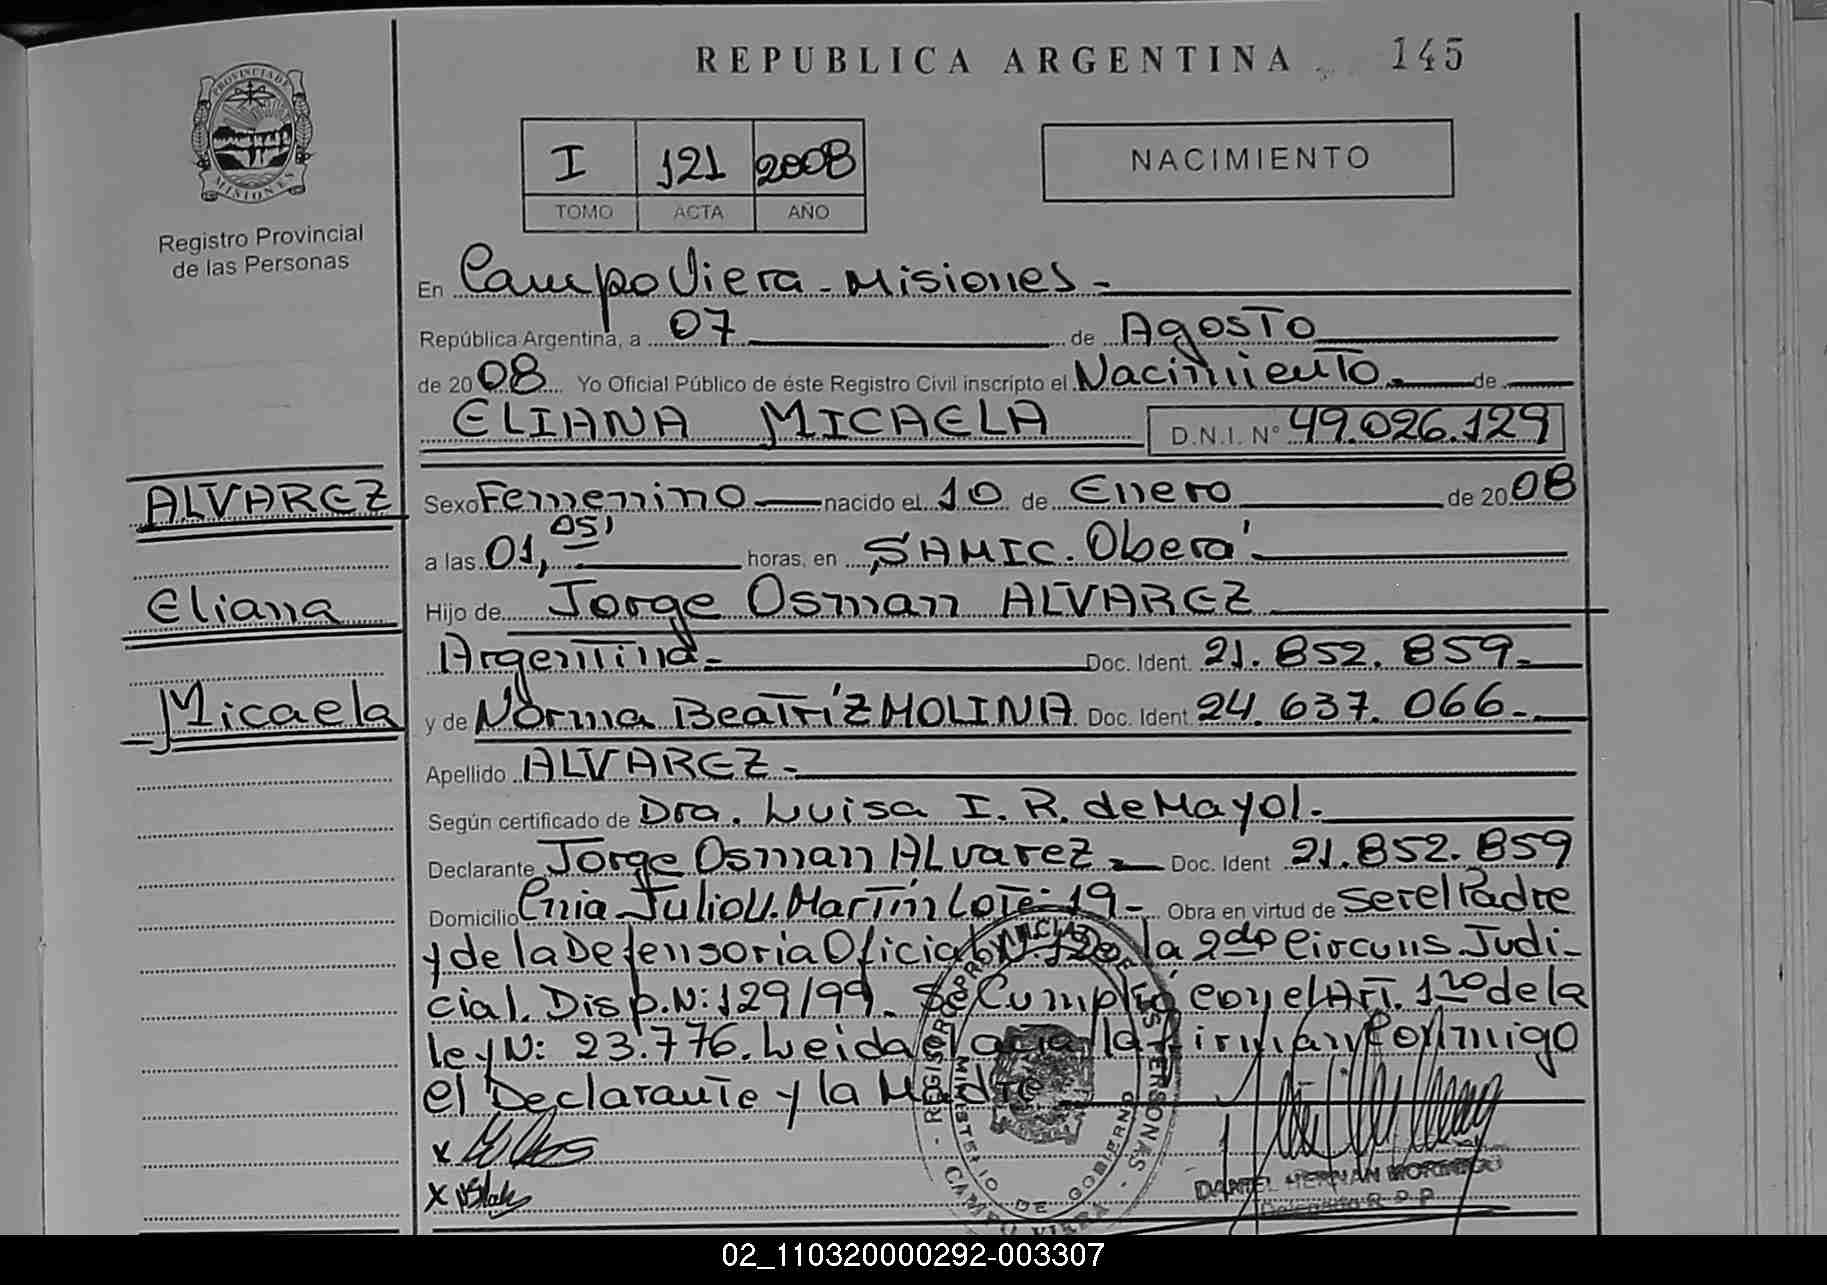 REPUBLICA ARGENTINA 145
PROVINCIA DE MISIONES
Registro Provincial
de las Personas
I 121 2008
TOMO ACTA AÑO
NACIMIENTO
En Campo Viera - Misiones -
República Argentina, a 07 de Agosto
de 2008 Yo Oficial Público de éste Registro Civil inscripto el Nacimiento de
ELIANA MICAELA D.N.I. N° 49.026.129
ALVAREZ
Eliana
Micaela
Sexo Femenino nacido el 10 de Enero de 2008
a las 01,05' horas, en SAMIC. Oberá
Hijo de Jorge Osman ALVAREZ
Argentina - Doc. Ident. 21.852.859-
y de Norma Beatríz MOLINA Doc. Ident. 24.637.066-
Apellido ALVAREZ -
Según certificado de Dra. Luisa I. R. de Mayol.
Declarante Jorge Osman ALvarez - Doc. Ident 21.852.859
Domicilio Cnia Julio U. Martín Lote 19 - Obra en virtud de ser el Padre
y de la Defensoria Oficial N: de la 2do Circuns Judi-
cial. Disp. N: 129/99. Se Cumplió con el Art. 1ro de la
ley N: 23.776. Leida el acta la firman conmigo
el Declarante y la Madre
REGISTRO PROVINCIAL DE LAS PERSONAS
MINISTERIO DE GOBIERNO
CAMPO VIERA
DANIEL HERNAN
Delegado R.P.P.
02_110320000292-003307